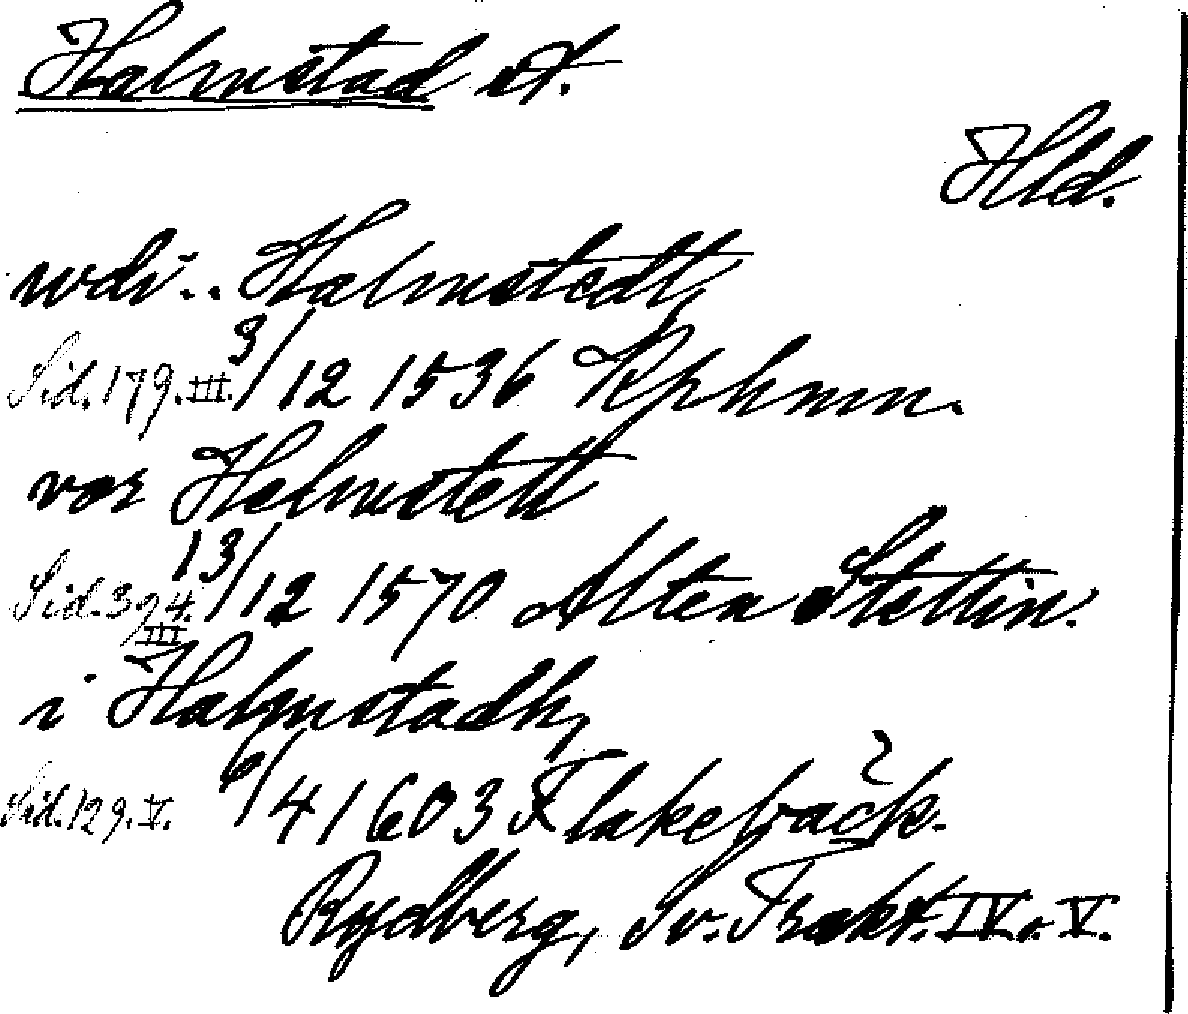 Halmstad st.
Hld.
udi.. Halmstedt,
Sid. 179. III. 3/12 1536 Kphmn.
vor Helmstett
Sid. 394. III 13/12 1570 Alten Stettin.
i Halmstadh,
Sid. 129. V. 6/4 1603 Flakebäck.
Rydberg, Sv. Trakt. IV o. V.